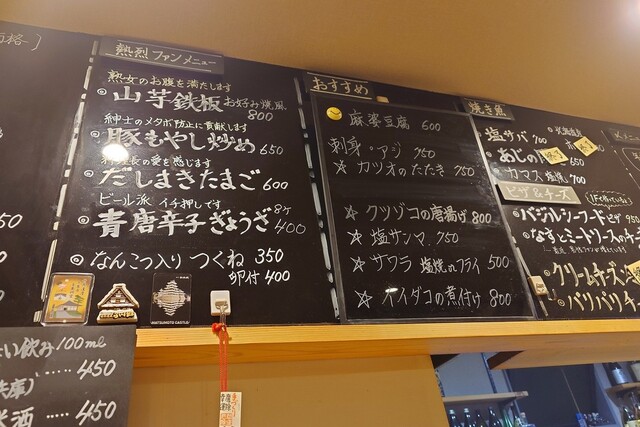 価格)
熱烈 ファンメニュー
熟女のお腹を満たします
山芋鉄板 お好み焼風 800
紳士のメタボ防止に貢献します
豚もやし炒め 650
長の愛を感じます
だしまきたまご 600
ビール派 イチ押しです
青唐辛子ぎょうざ 8ヶ 400
なんこつ入り つくね 350
卵付 400
おすすめ
麻婆豆腐 600
刺身・アジ 750
☆ カツオのたたき 750
☆ クツゾコの唐揚げ 800
☆ 塩サンマ 750
☆ サワラ 塩焼orフライ 500
☆ イイダコの煮付け 800
焼き魚
塩サバ 700
あじの
650
カマス 塩焼 700
ピザ&チーズ
バジルシーフードピザ 950
なすとミートソースのチ
クリームチーズ
バリバリチ
い飲み 100ml
450
兵庫)
米酒 ..... 450
50
MATSUMOTO CASTLE